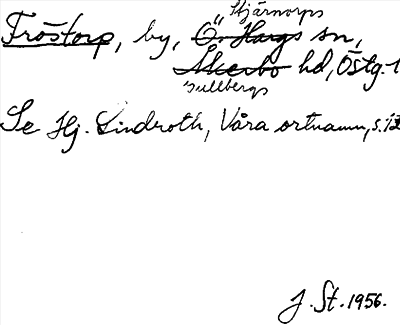 Stjärnorps
Fröstorp, by, Ö. Hargs sn,
Åkerbo hd, Östg.
Gullbergs
Se Hj. Lindroth, Våra ortnamn, s.
J. St. 1956.